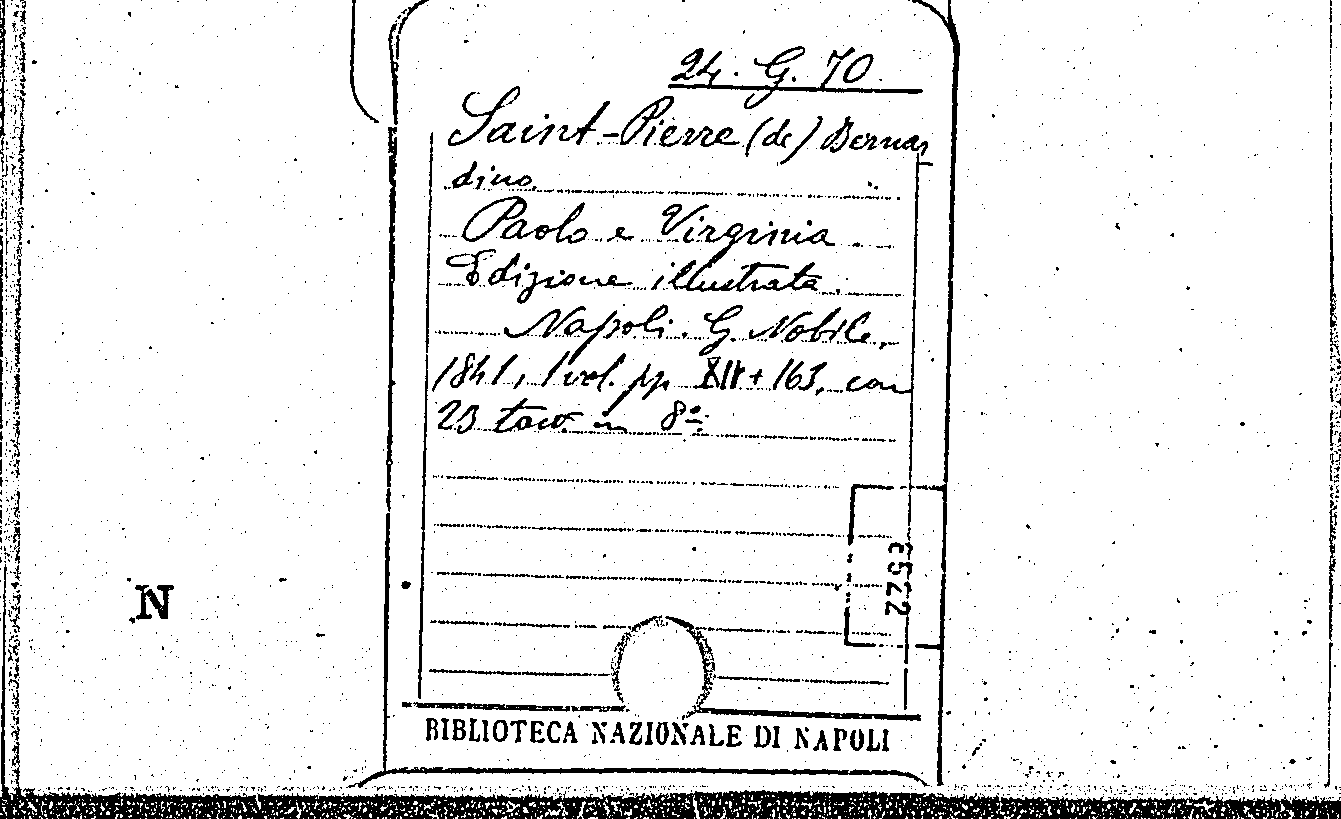 24. G. 70
Saint-Pierre (de) Bernar
dino
Paolo e Virginia.
Edizione illustrata.
Napoli. G. Nobile,
1841, 1 vol. pp. + 163, con
23 tav. in 8º
2522
N
BIBLIOTECA NAZIONALE DI NAPOLI